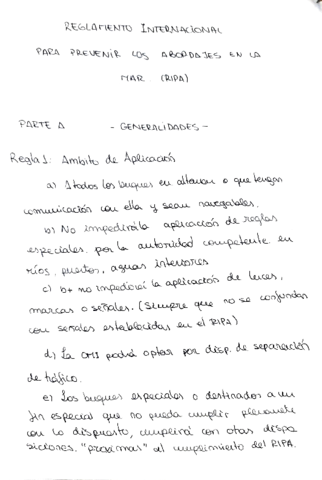 REGLAMENTO INTERNACIONAL
PARA PREVENIR LOS ABORDAJES EN LA
MAR (RIPA)
PARTE A - GENERALIDADES -
Regla 1: Ambito de Aplicación
a) A todos los buques en altamar o que tengan
comunicación con ella y sean navegables.
b) No impedirá la aplicación de reglas
especiales, por la autoridad competente en
ríos, puertos, aguas interiores
c) no impedirá la aplicación de luces,
marcas o señales. (Siempre que no se confundan
con señales establecidas en el RIPA)
d) La OMI podrá optar por disp. de separación
de tráfico.
e) Los buques especiales o destinados a un
fin especial que no pueda cumplir plenamente
con lo dispuesto, cumplirá con otras dispo
siciones. "proximas" al cumplimiento del RIPA.